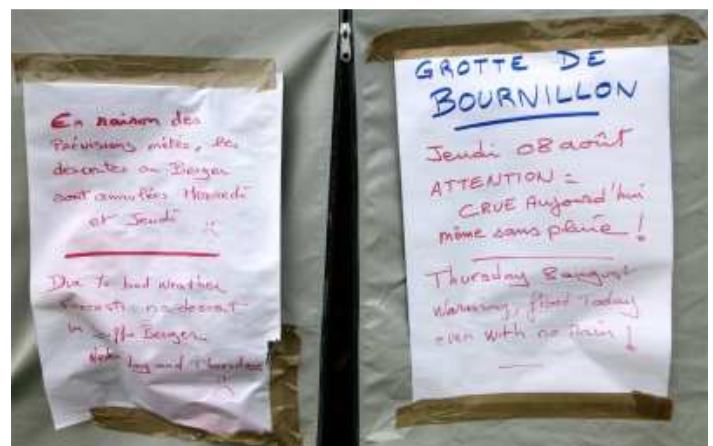 En raison des
Prévisions météo, les
descentes au Berger
sont annulées Mercredi
et Jeudi :(
Due to bad weather
forecasts, no descent
in gouffre Berger
day and Thursday
GROTTE DE
BOURNILLON
Jeudi 08 août
ATTENTION =
CRUE Aujourd'hui
même sans pluie !
Thursday 8 august
Warning, flood Today
even with no Rain !